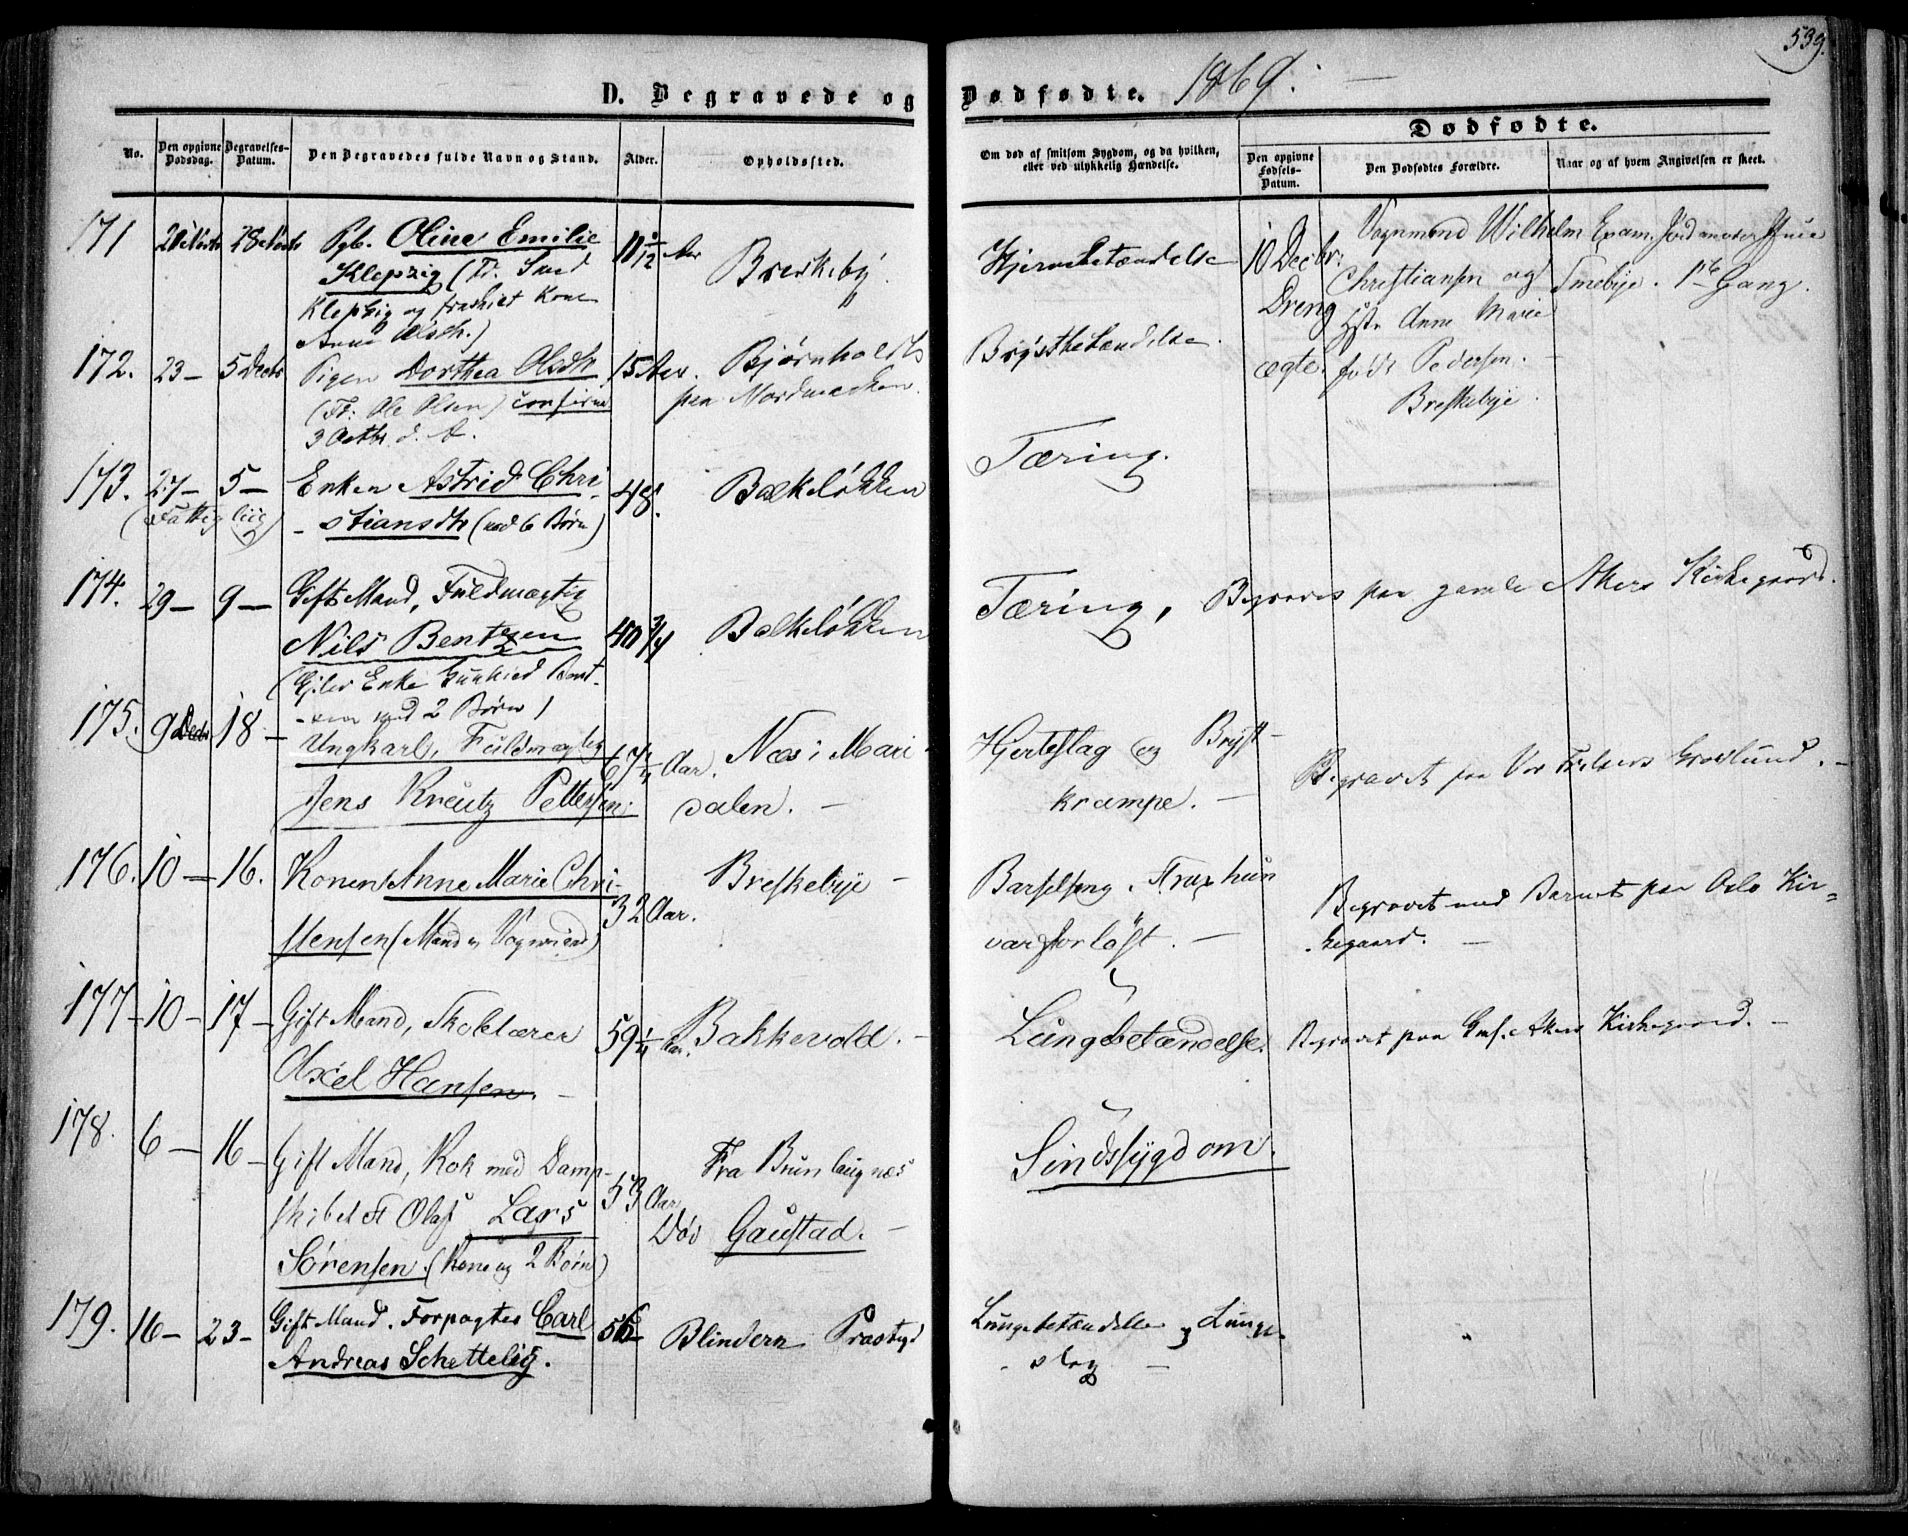 539.
D. Begravede og Dødfødte. 1869.
No.
Den opgivne Dødsdag.
Begravelses-Datum.
Den Begravedes fulde Navn og Stand.
Alder.
Opholdssted.
Om død af smitsom Sygdom, og da hvilken,
eller ved ulykkelig Hændelse.
Dødfødte.
Den opgivne Fødsels-Datum.
Den Dødfødtes Forældre.
Naar og af hvem Angivelsen er skeet.
171 Pgb. Oline Emilie
Klepzig (Fr. Smed
Klepzig og fraskilt Kone
Anne Olsdt.)
Hjernebetændelse
10 Decbr.
Dreng
ægte.
Vognmand Wilhelm
Christiansen og
Hstr. Anne Marie
født Pedersen.
Breskebye.
Exam. Jordmoder
Smebye. 1ste Gang.
172. 23 — 5 Decbr Pigen Dorthea Olsdtr 15 Aar. Bjørnholdt
(Fr. Ole Olsen) confirm
3 Octbr. d. A.
paa Nordmarken.
Brystbetændelse.
173. 27 — 5 — Enken Astrid Chri- 48. Bakkeløkken Tæring.
(Fattiglig)
stiansdtr (med 6 Børn)
174. 29 — 9 — Gift Mand, Fuldmægtig
Nils Bentzen 40 3/4 Bakkeløkken
Tæring, Begraves paa gamle Akers Kirkegaard.
-zen med 2 Børn)
175. 9 Decbr 18 — Ungkarl, Fuldmægtig
Jens Kreutz Pettersen. Aar. Næs i Mari-
dalen. —
Hjerteslag og Bryst-
krampe. —
Begravet paa Vor Frelsers Gravlund. —
176. 10 — 16. Konen Anne Marie Chri-
stensen (Mand
32 Aar. Breskebye —
Barselseng, strax hun
var forløst. —
Begravet med Barnet paa Oslo Kir-
kegaard. —
177 — 10 — 17 — Gift Mand, Skolelærer
Axel Hansen. — 59 1/4 Aar. Bakkevold. —
Lungebetændelse. Begravet paa Gml. Akers Kirkegaard. —
178. 6 — 16 — Gift Mand, Kok med Damp-
skibet St Olaf Lars
Sørensen. (Kone og 2 Børn)
53 Aar. Fra Brunlaugnæs
Død Gaustad. —
Sindssygdom.
179. 16 — 23 — Gift Mand. Forpagter Carl
Andreas Schettelig. 56 Blindern
Lungebetændelse og Lunge-
slag —